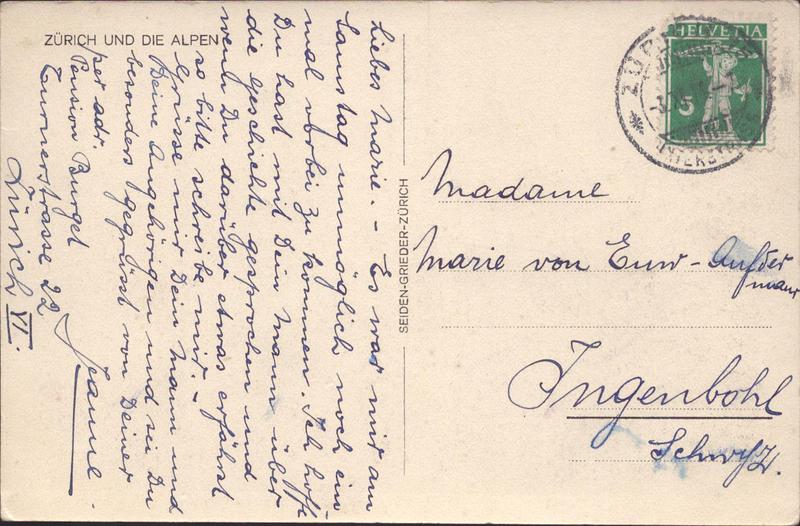 ZÜRICH UND DIE ALPEN
Liebes Marie. - Es war mir am
Samstag unmöglich noch ein-
mal vorbei zu kommen. Ich hoffe
Du hast mit Dein Mann über
die Geschichte gesprochen und
wenn Du darüber etwas erfährst
so bitte schreibe mir. -
Grüsse mir Dein Mann und
Deine Angehörigen und sei Du
besonders gegrüsst von Deiner
Jeanne.
per adr.
Pension Burget
Turnerstrasse 22
Zürich VI.
SEIDEN-GRIEDER-ZÜRICH
HELVETIA
5
Madame
Marie von Euw-Aufder
maur
Ingenbohl
Schwyz.